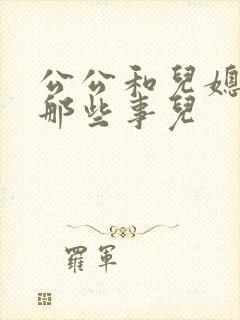 公公和兒媳
那些事兒
羅軍